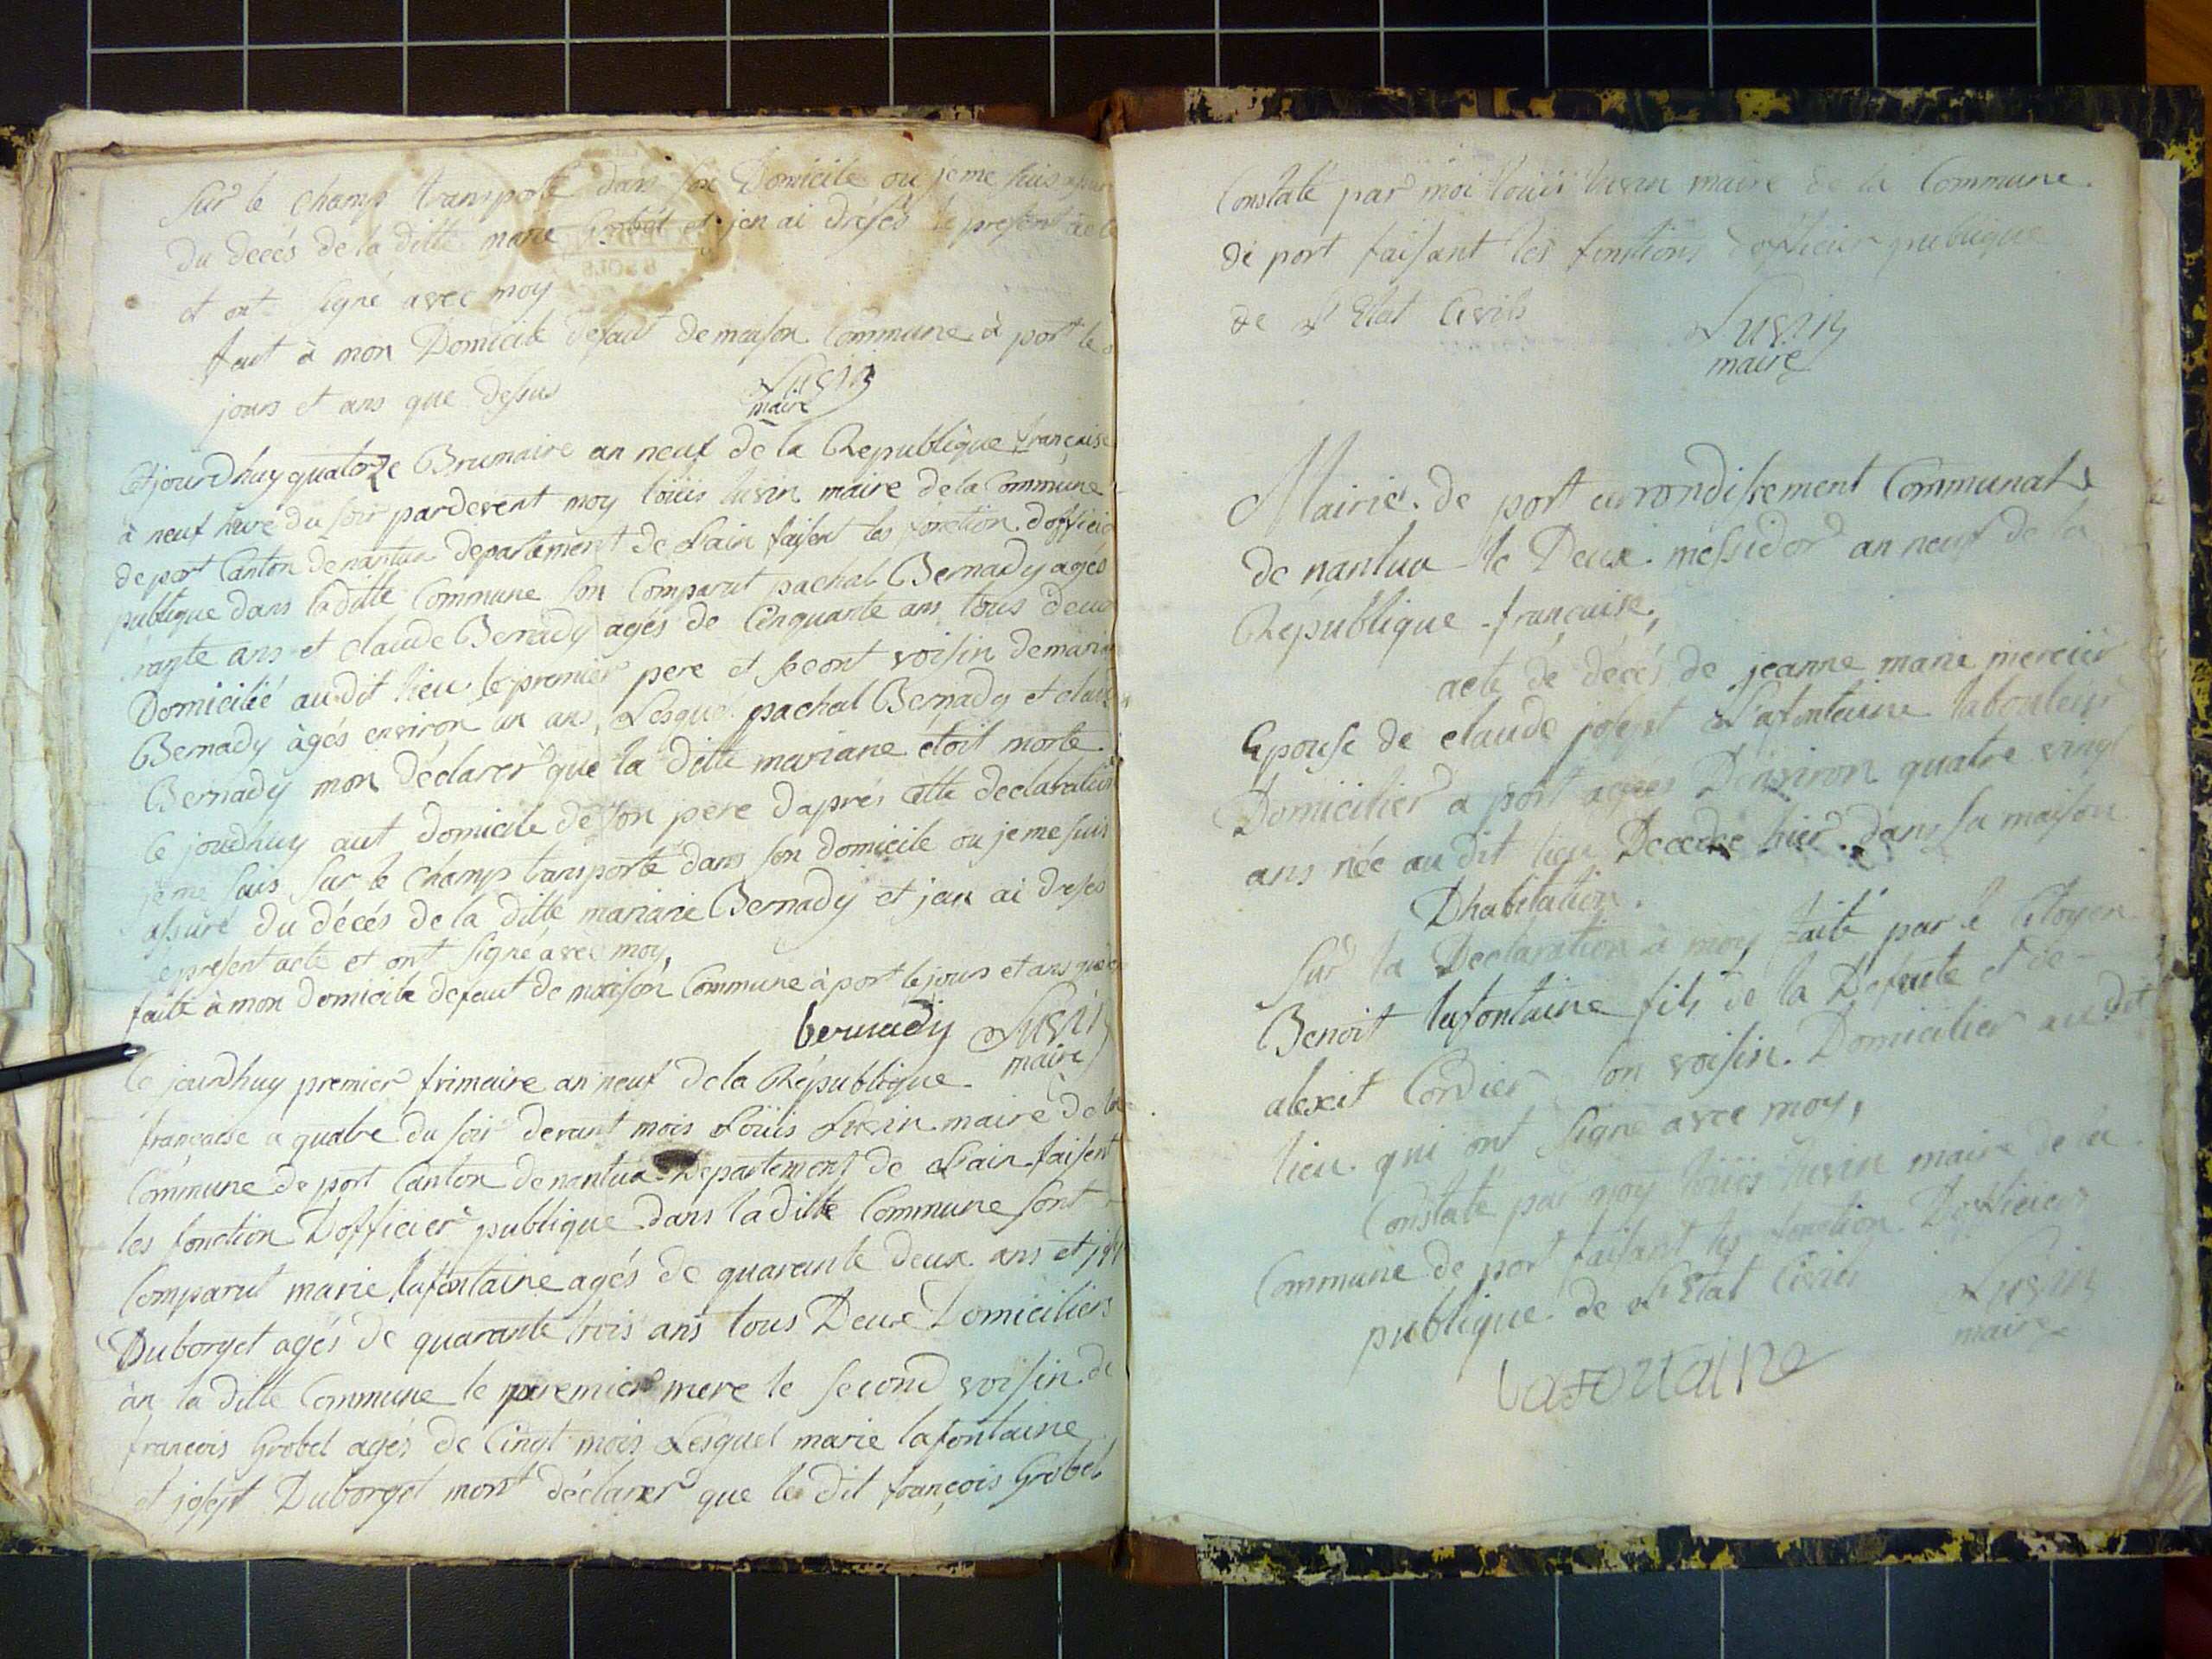 Sur le Champ transporté dans son Domicile ou je me suis assuré
du decés de la ditte marie Grobel et jen ai drésés le present acte
et ont signé avec moy
fait à mon Domicile defaut de maison Commune à port le
jours et ans que dessus
Luvin
maire
Cejourdhuy quatorze Brumaire an neuf de la Republique française
à neuf hure du soir pardevent moy loüis luvin maire de la Commune
de port Canton de nantua departement de Lain faisent les fonction dofficier
publique dans laditte Commune son Comparut pachal Bernady agés
rante ans et claude Bernady agés de Cinquante ans tous deux
Domicilié audit lieu le premier pere et secont voisin de mariane
Bernady àgés environ un ans, Lesquel pachal Bernady et claude
Bernady mon déclarer que la ditte mariane étoit morte
Ce jourdhuy aut domicile de son pere daprés cette declaration
je me suis sur le Champ transporté dans son domicile ou je me suis
assuré du décés de la ditte mariane Bernady et jen ai dresés
le present acte et ont signé avec moy,
faite à mon domicile defaut de maison Commune à port le jours et ans que
bernady Luvin
maire
Ce jourdhuy premier frimaire an neuf de la République
française a quatre du soir devant mois Loüis Luvin maire de la
Commune de port Canton de nantua Departement de Lain faisent
les fonction Dofficier publique dans la ditte Commune sont
Comparut marie lafontaine agés de quarante deux ans et
Duborget agés de quarante trois ans tous Deux Domiciliers
àn la ditte Commune le premier mere le second voisin de
françois Grobel agés de Cinqt mois Lesquel marie lafontaine
et josept Duborget mont déclarer que le dit françois Grobel
Constaté par moi loüis luvin maire de la Commune
de port faisant les fonctions dofficier publique
de L'Etat Civils
Luvin
maire
Mairie de port arrondissement Communal
de nantua le Deux messidor an neuf de la
République française,
acte de décés de jeanne marie mercier
Epouse de claude josept Lafontaine laboureur
Domicilier a port agées Denviron quatre vingt
ans née au dit lieu Decedée hier dans sa maison
Dhabitation.
Sur la Declaration à moy faite par le Citoyen
Benoit lafontaine fils de la Defunte et de
alexit Cordier son voisin. Domicilier audit
lieu qui ont signé avec moy,
Constaté par moy loüis luvin maire de la
Commune de port faisant les fonction Dofficier
publique de L'Etat Civils
Luvin
maire
Lafontaine